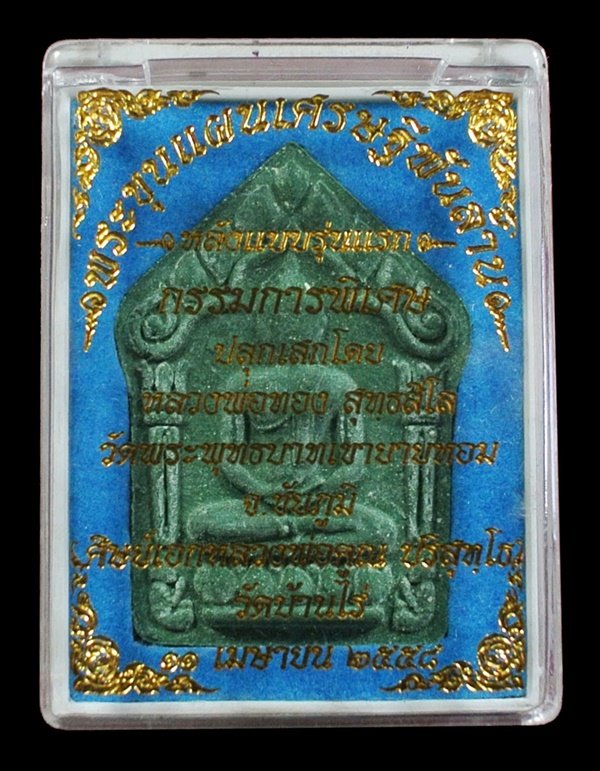 พระขุนแผนเศรษฐีพันล้าน
หลังแบบรุ่นแรก
กรรมการพิเศษ
ปลุกเสกโดย
หลวงพ่อทอง สุทธสีโล
วัดพระพุทธบาทเขายายหอม
จ.ชัยภูมิ
(ศิษย์เอกหลวงพ่อคูณ ปริสุทฺโธ)
วัดบ้านไร่
๑๑ เมษายน ๒๕๕๘